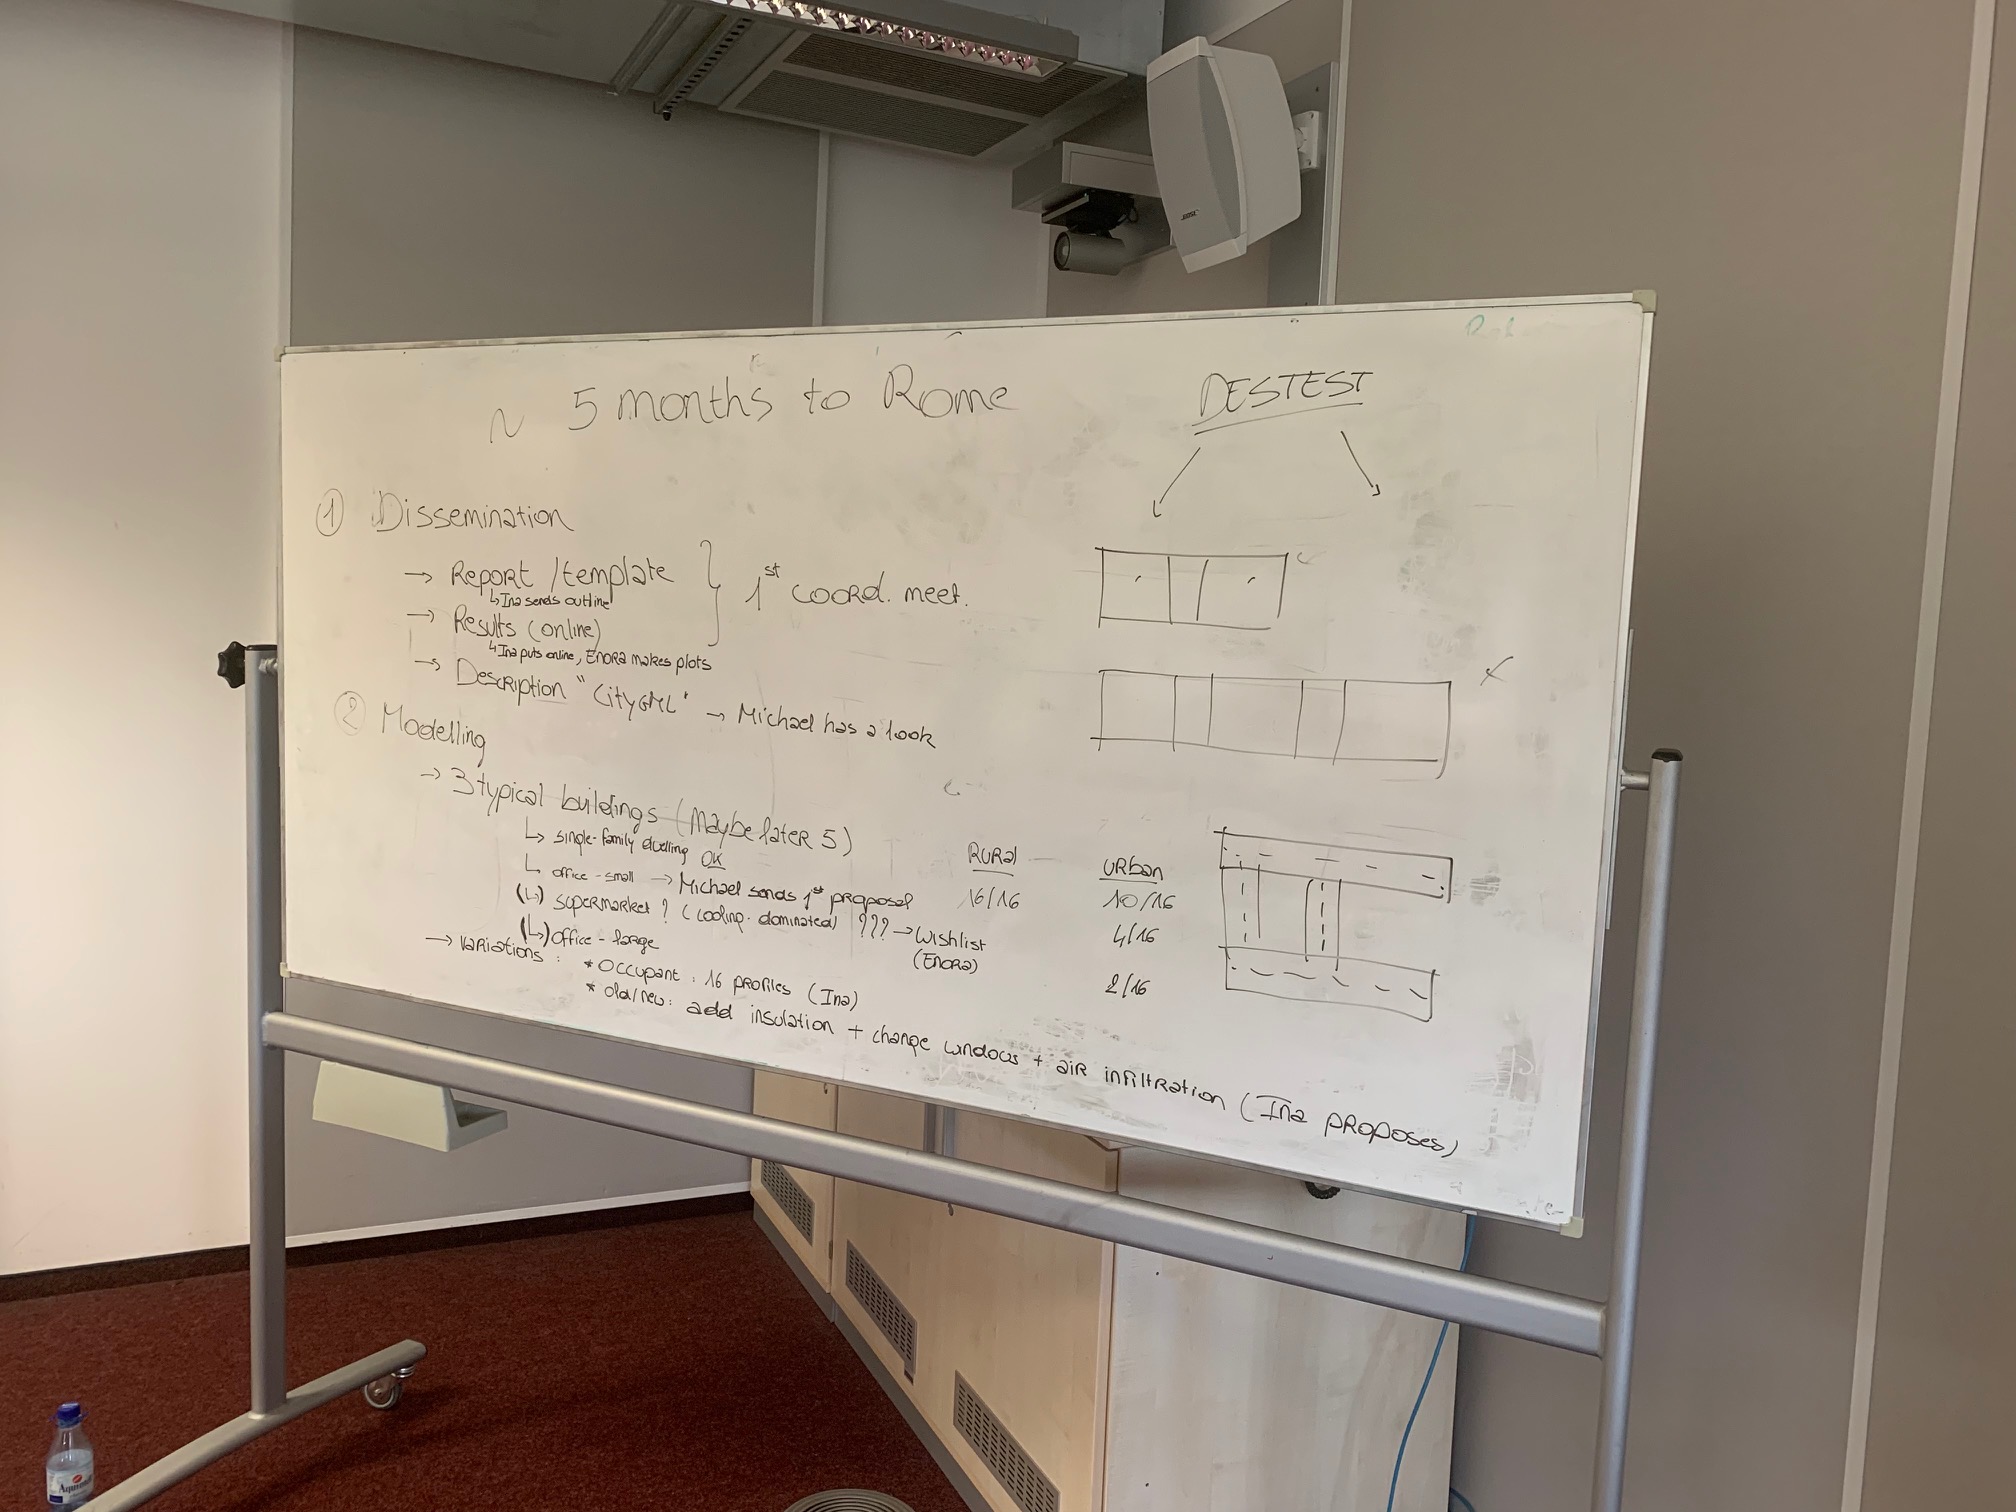 ~ 5 months to Rome
DESTEST
① Dissemination
→ Report / template } 1st coord. meet.
↳ Ina sends outline
→ Results (online)
↳ Ina puts online, Enora makes plots
→ Description "CityGML" → Michael has a look
② Modelling
→ 3 typical buildings (Maybe later 5)
↳ single-family dwelling OK
↳ office - small → Michael sends 1st proposal
(↳) supermarket ? (cooling-dominated) ??? → Wishlist (Enora)
(↳) Office - large
→ Variations : * Occupant : 16 profiles (Ina)
* Old/new : add insulation + change windows + air infiltration (Ina proposes)
Rural
16/16
Urban
10/16
4/16
2/16
BOSE